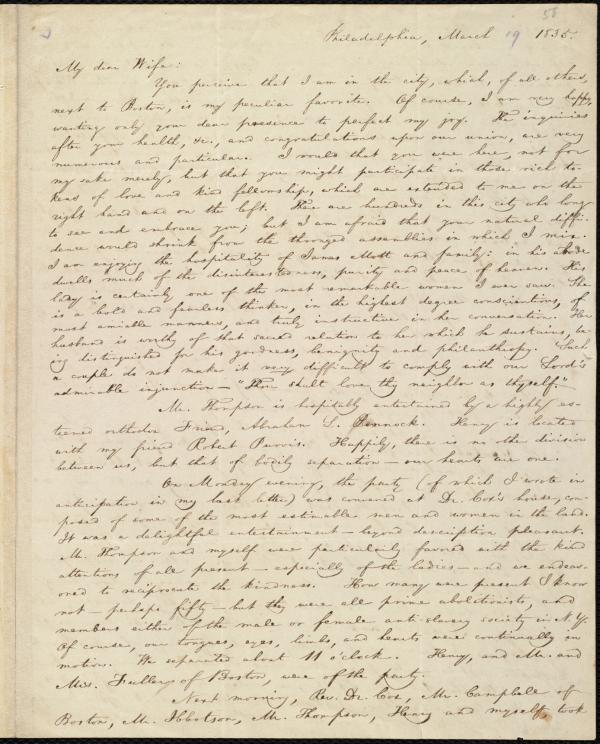 58
Philadelphia, March 19 1835.
My dear Wife:
You perceive that I am in the city, which, of all others,
next to Boston, is my peculiar favorite. Of course, I am very happy,
wanting only your dear presence to perfect my joy. The inquiries
after your health, &c., and congratulations upon our union, are very
numerous and particular. I would that you were here, not for
my sake merely, but that you might participate in those rich to-
kens of love and kind fellowship, which are extended to me on the
right hand and on the left. There are hundreds in this city who long
to see and embrace you; but I am afraid that your natural diffi-
dence would shrink from the thronged assemblies in which I mix.
I am enjoying the hospitality of James Mott and family: in his abode
dwells much of the disinterestedness, purity and peace of heaven. His
lady is certainly one of the most remarkable women I ever saw. She
is a bold and fearless thinker, in the highest degree conscientious, of
most amiable manners, and truly instructive in her conversation. Her
husband is worthy of that sacred relation to her which he sustains, be-
ing distinguished for his goodness, benignity and philanthropy. Such
a couple do not make it very difficult to comply with our Lord's
admirable injunction—"Thou shalt love thy neighbor as thyself."
Mr. Thompson is hospitably entertained by a highly es-
teemed orthodox Friend, Abraham L. Pennock. Henry is located
with my friend Robert Purvis. Happily, there is no other division
between us, but that of bodily separation—our hearts are one.
On Monday evening, the party (of which I wrote in
anticipation in my last letter) was convened at Dr. Cox's house, com-
posed of some of the most estimable men and women in the land.
It was a delightful entertainment—beyond description pleasant.
Mr. Thompson and myself were particularly favored with the kind
attentions of all present—especially of the ladies—and we endeav-
ored to reciprocate the kindness. How many were present I know
not—perhaps fifty—but they were all prime abolitionists, and
members either of the male or female anti-slavery society in N. Y.
Of course, our tongues, eyes, limbs, and hearts were continually in
motion. We separated about 11 o'clock. Henry, and Mr. and
Miss. Fuller of Boston, were of the party.
Next morning, Rev. Dr. Cox, Mr. Campbell of
Boston, Mr. Ibbotson, Mr. Thompson, Henry and myself, took